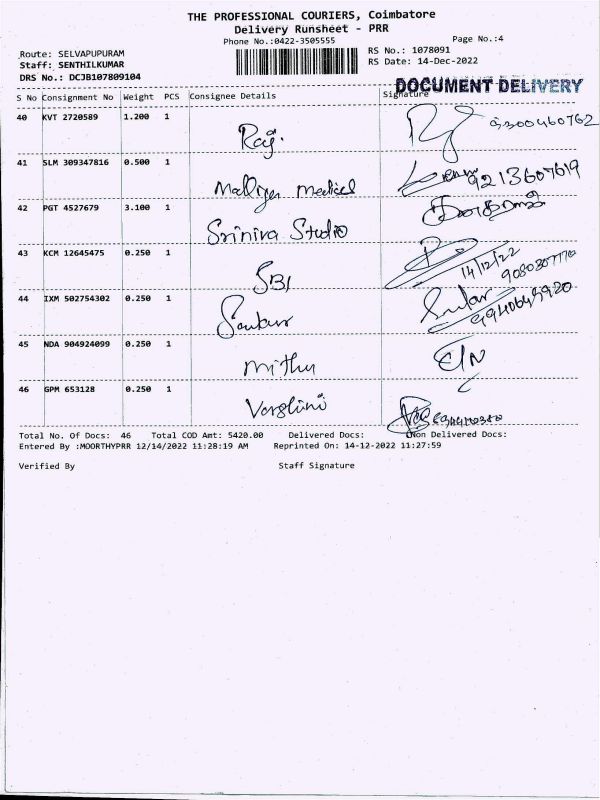 THE PROFESSIONAL COURIERS, Coimbatore
Delivery Runsheet - PRR
Phone No.:0422-3505555
Page No.:4
Route: SELVAPUPURAM
Staff: SENTHILKUMAR
DRS No.: DCJB107809104
RS No.: 1078091
RS Date: 14-Dec-2022
DOCUMENT DELIVERY
S No Consignment No Weight PCS Consignee Details Signature
40 KVT 2720589 1.200 1 Raj.
41 SLM 309347816 0.500 1 medical 9213607619
42 PGT 4527679 3.100 1 Sriniva Studio
43 KCM 12645475 0.250 1 SBI 14/12/22
44 IXM 502754302 0.250 1
45 NDA 904924099 0.250 1 mithu
46 GPM 653128 0.250 1 Varshini
Total No. Of Docs: 46 Total COD Amt: 5420.00 Delivered Docs: Non Delivered Docs:
Entered By :MOORTHYPRR 12/14/2022 11:28:19 AM Reprinted On: 14-12-2022 11:27:59
Verified By Staff Signature